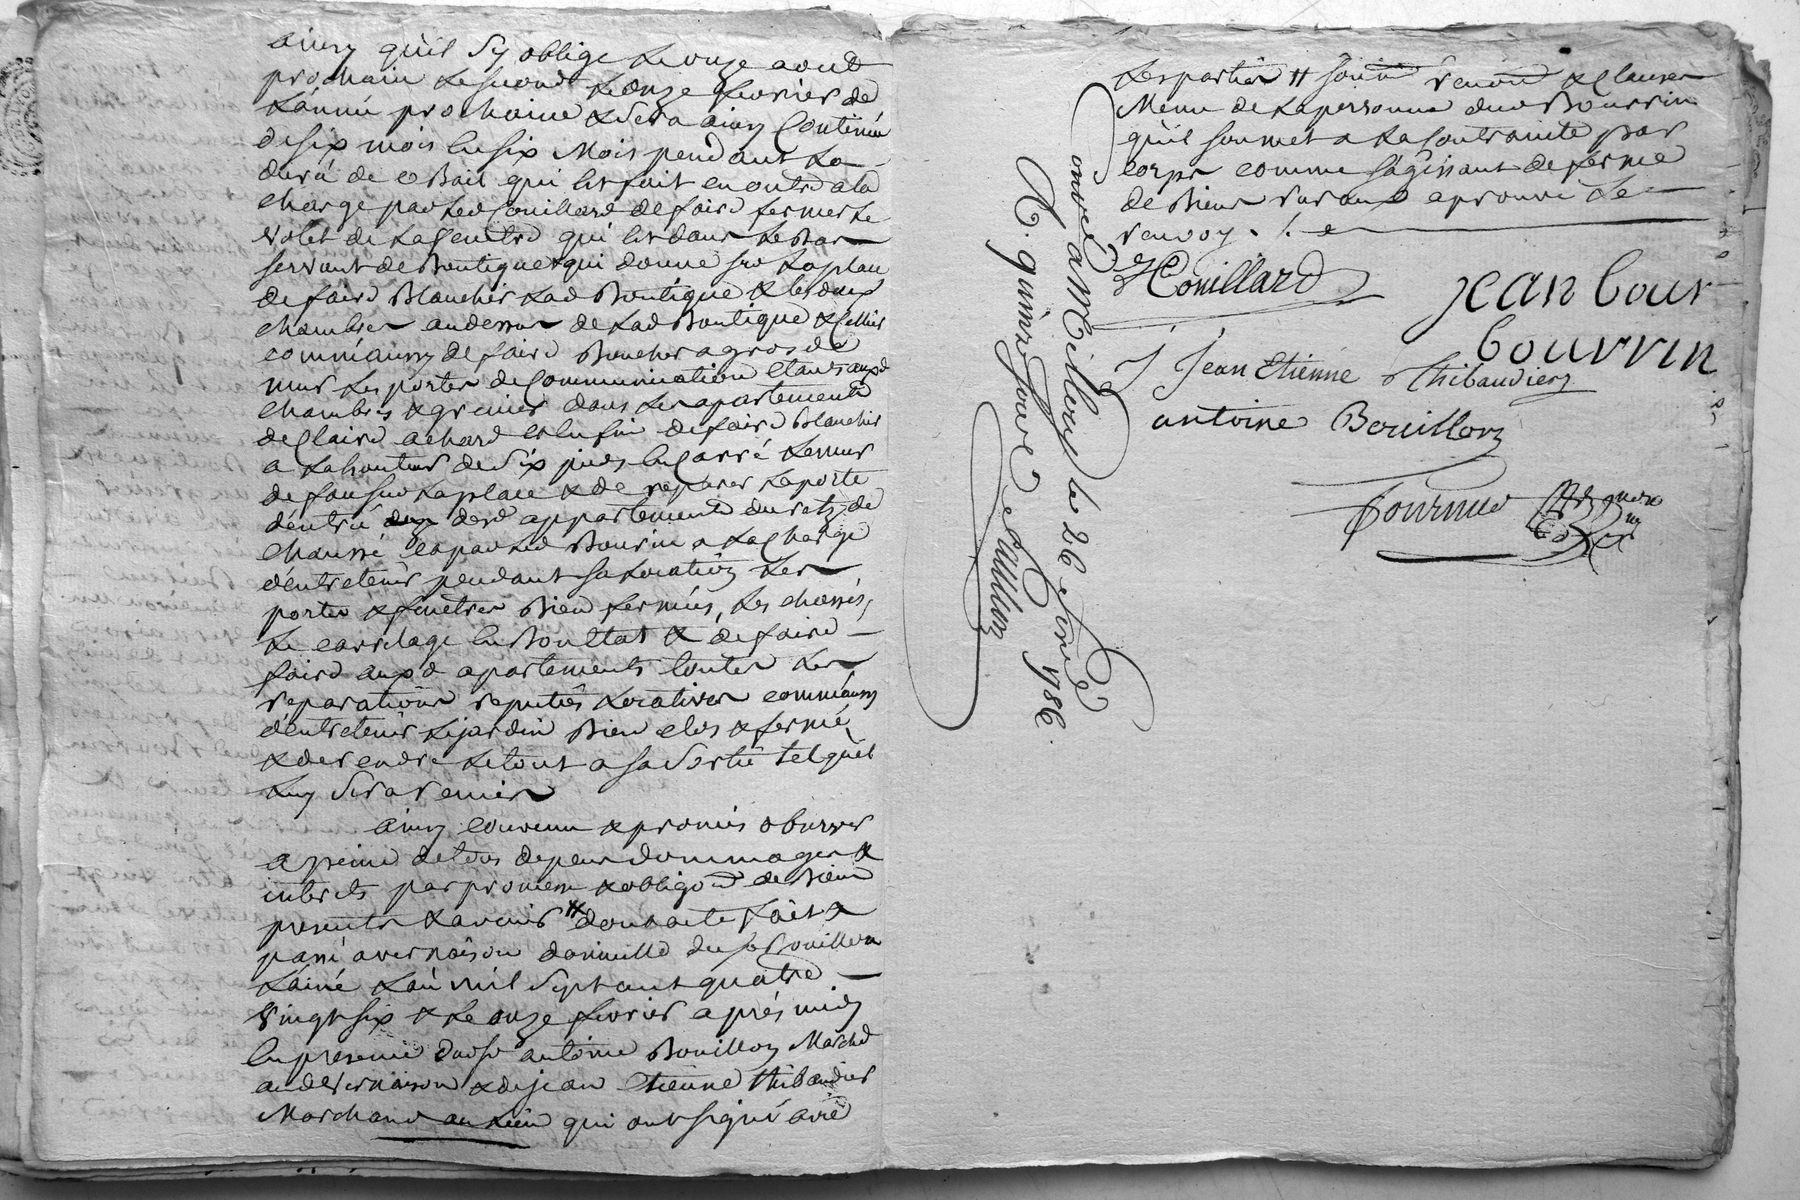 ainsy qu'il sy oblige le onze aout
prochain le second le onze fevrier de
l'année prochaine & sera ainsy continué
de six mois en six mois pendant la
durée de ce Bail qui est fait en outre a la
charge par led Couillard de faire fermer le
volet de la fenetre qui est dans le Bas
servant de Boutique & qui donne sur la place
de faire Blanchir lad Boutique & les deux
chambres au dessus de lad Boutique & Cellier
comme aussy de faire Boucher a gros de
mur les portes de Communication étant auxd
chambres & grenier dans les apartements
de Claire achard et enfin de faire Blanchir
a la hauteur de six pieds en Carré le mur
de fau sur la place & de reparer la porte
d'entrée desd appartements du retz de
chaussé et par led Bourrin a la charge
d'entretenir pendant sa location les
portes & fenetres Bien fermées, les chassis,
le carrelage en Bon Etat & de faire
faire auxd apartements toutes les
reparations reputées locatives comme aussy
d'entretenir le jardin Bien clos & fermé
& de rendre le tout a sa sortie tel qu'il
luy sera remis
ainsy convenu & promis observer
a peine de tous depens dommages &
interets par promesse & obligon de Biens
presents & avenir # dont acte fait &
passé a vernaison domicille du sr Bouillon
l'ainé l'an mil sept cent quatre
vingt six & le onze fevrier aprés midy
en presence dud sr antoine Bouillon Marchd
aud vernaison & de jean Etienne thibaudier
Marchand au lieu qui ont signé avec
les parties # sous renon & Clauses
Meme de la personne dud Bourrin
qu'il soumet a la contrainte par
corps comme s'agissant de ferme
de Biens ruraux aprouvé le
renvoy ./.
Couillard
jean bour
bourrin
J Jean Etienne Thibaudier
antoine Bouillon
Fournier
Controllé a Millery le 26 fevrier 1786
R. quinze sous